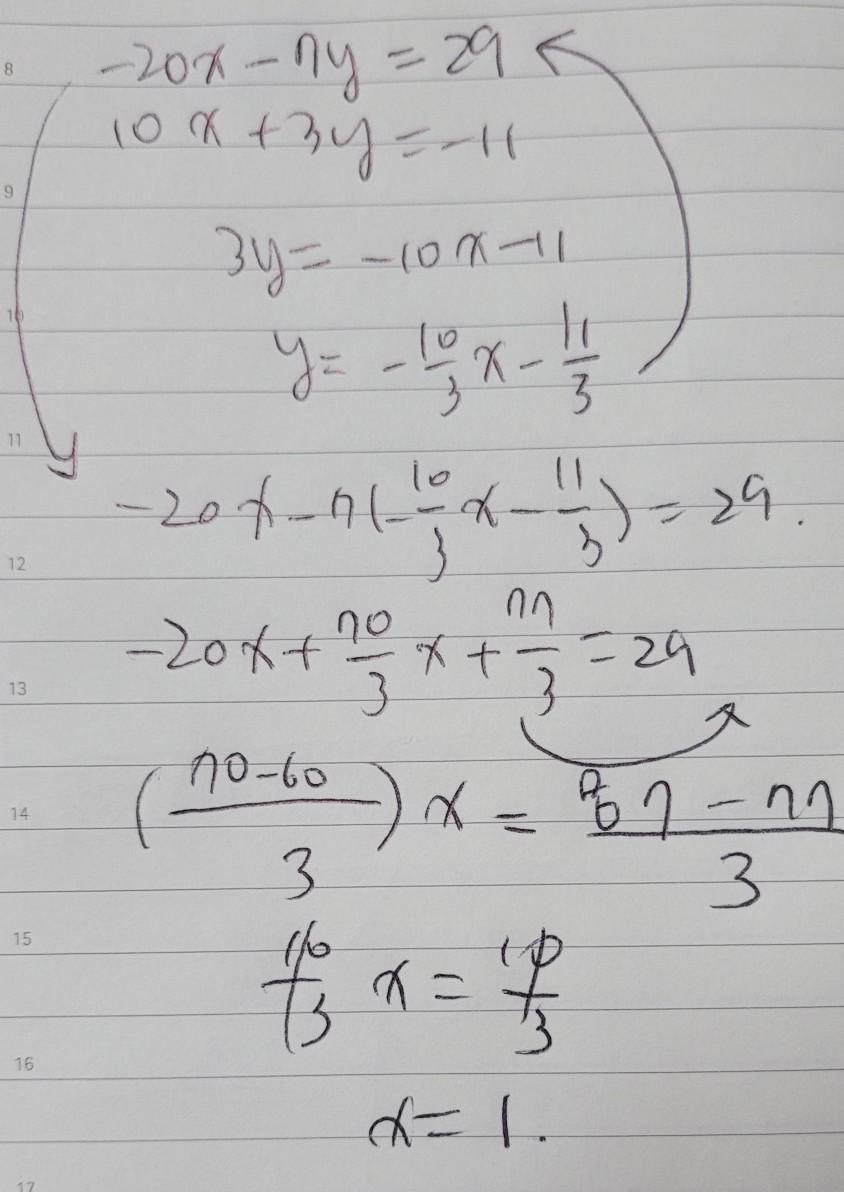 8
-20x - 7y = 29
10x + 3y = -11
9
3y = -10x - 11
10
y = -10/3 x - 11/3
11
-20x - 7(-10/3 x - 11/3) = 29.
12
-20x + 70/3 x + 77/3 = 29
13
(70-60/3) x = 87 - 77/3
14
15
10/3 x = 10/3
16
x = 1.
17